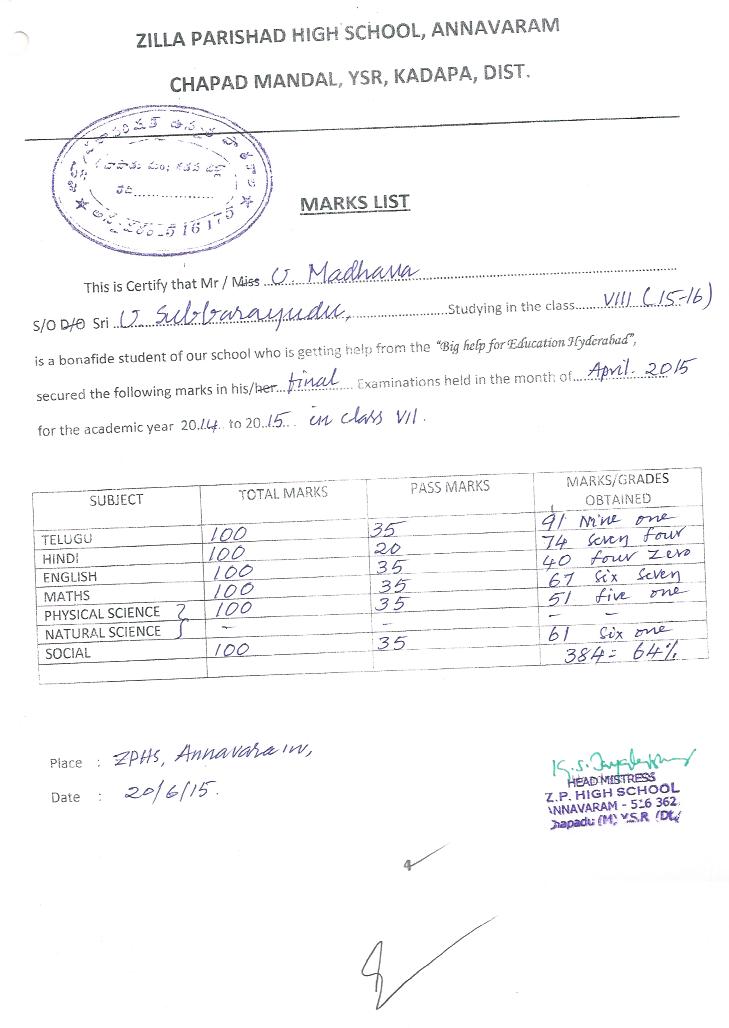 ZILLA PARISHAD HIGH SCHOOL, ANNAVARAM
CHAPAD MANDAL, YSR, KADAPA, DIST.
516175
MARKS LIST
This is Certify that Mr / Miss U Madhava
S/O D/O Sri U Subbarayudu, Studying in the class VIII (15-16)
is a bonafide student of our school who is getting help from the "Big help for Education Hyderabad",
secured the following marks in his/her final Examinations held in the month of April. 2015
for the academic year 2014 to 2015 in class VII.
SUBJECT TOTAL MARKS PASS MARKS MARKS/GRADES OBTAINED
TELUGU 100 35 91 Nine one
HINDI 100 20 74 seven four
ENGLISH 100 35 40 four zero
MATHS 100 35 67 six seven
PHYSICAL SCIENCE 100 35 51 five one
NATURAL SCIENCE - - - -
SOCIAL 100 35 61 six one
384 = 64%
Place : ZPHS, Annavaram,
Date : 20/6/15.
HEAD MISTRESS
Z.P. HIGH SCHOOL
ANNAVARAM - 516 362
hapadu (M) Y.S.R (Dt)